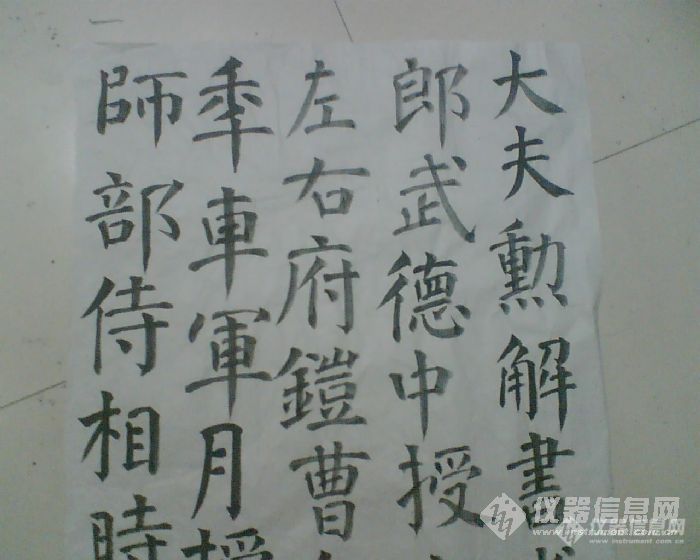 大夫勳解書
郎武德中授
左右府鎧曹
秊車軍月授
師部侍相時
仪器信息网
www.instrument.com.cn